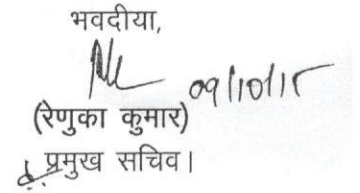 भवदीया,
09/10/15
(रेणुका कुमार)
प्रमुख सचिव।